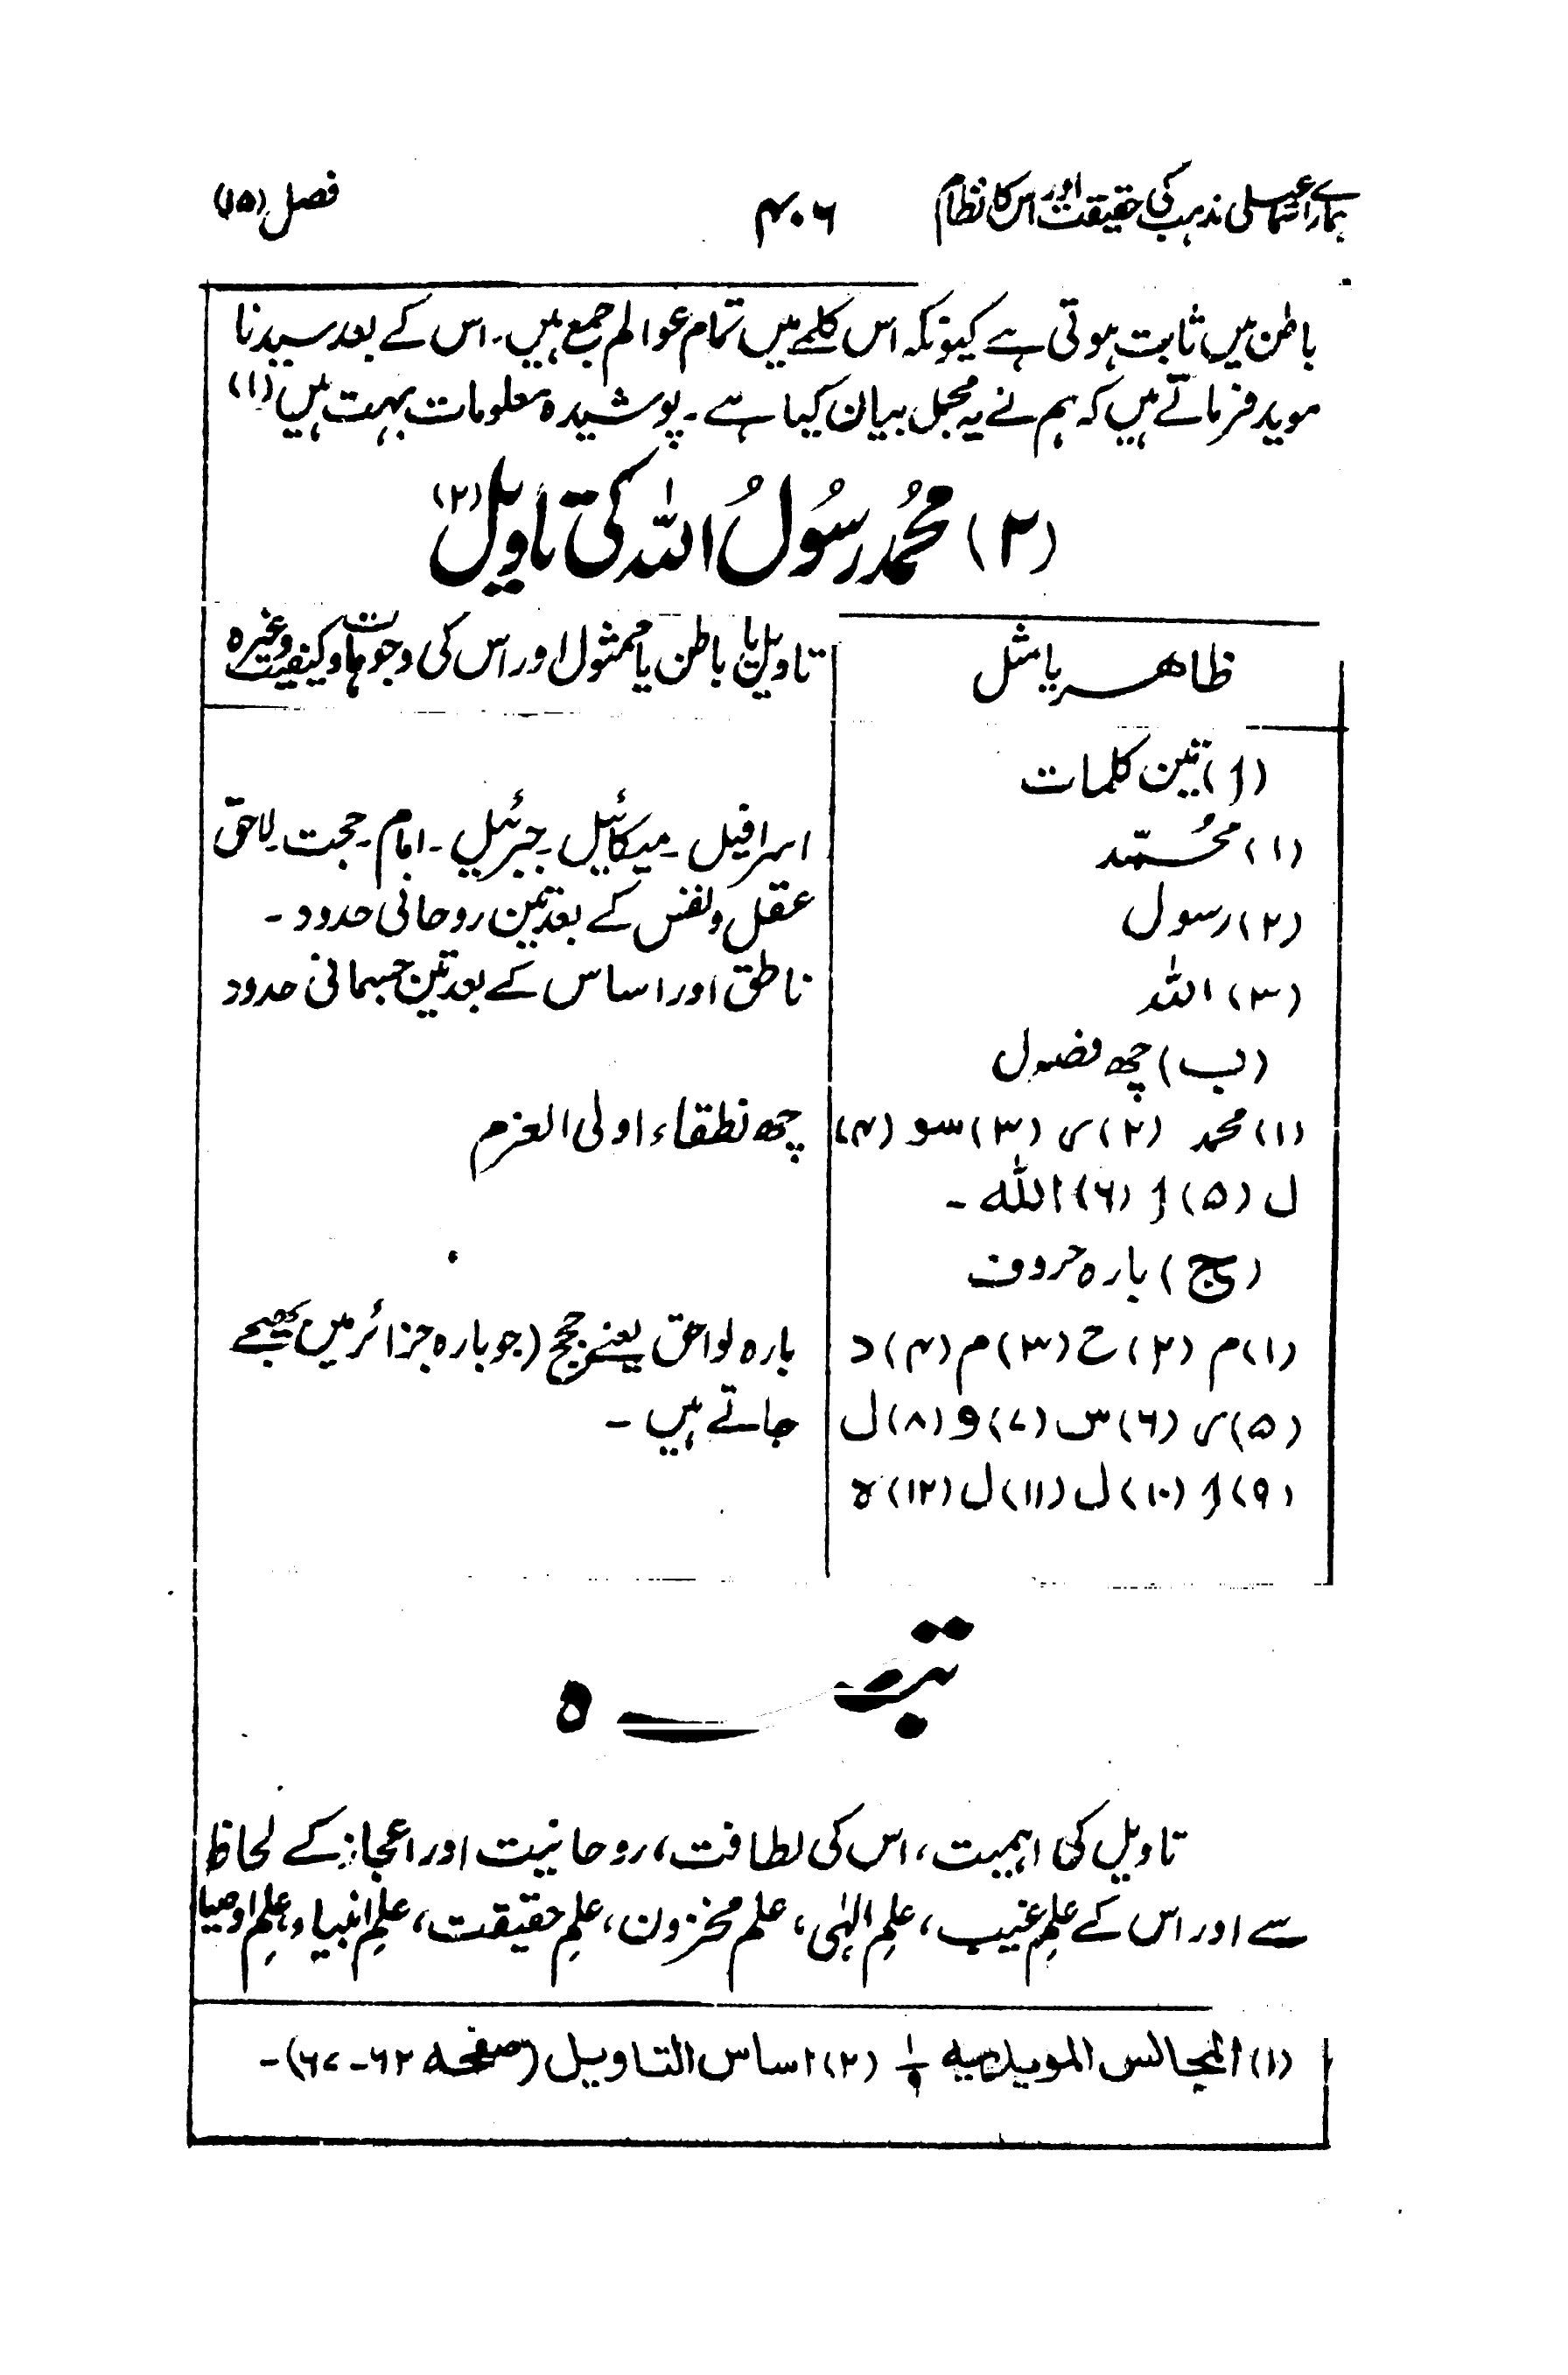 ہمارے اسماعیلی مذہب کی حقیقت اور اس کا نظام ۴۰۶ فصل (۱۵)
باطن میں ثابت ہوتی ہے کیونکہ اس کلمے میں تمام عوالم جمع ہیں۔ اس کے بعد سیدنا
موید فرماتے ہیں کہ ہم نے یہ مجمل بیان کیا ہے۔ پوشیدہ معلومات بہت ہیں (۱)
(۲) محمدُ رسُولُ اللہ کی تاویل (۲)
ظاہر یا مثل
تاویل یا باطن یا ممثول اور اس کی وجوہات و کیفیت وغیرہ
(ا) تین کلمات
(۱) محُمّد
اسرافیل۔ میکائیل۔ جبرئیل۔ امام۔ حجت۔ لاحق
(۲) رسول
عقل و نفس کے بعد تین روحانی حدود۔
(۳) اللہ
ناطق اور اساس کے بعد تین جسمانی حدود
(ب) چھ فصول
(۱) محمد (۲) ر (۳) سو (۴)
چھ نطقاء اولی العزم
ل (۵) ا (۶) اللہ۔
(ج) بارہ حروف
(۱) م (۲) ح (۳) م (۴) د
بارہ لواحق یعنے حجج (جو بارہ جزائر میں بھیجے
(۵) ر (۶) س (۷) و (۸) ل
جاتے ہیں۔
(۹) ا (۱۰) ل (۱۱) ل (۱۲) ہ
تبصرہ
تاویل کی اہمیت، اس کی لطافت، روحانیت اور اعجاز کے لحاظ
سے اور اس کے علمِ غیب، علمِ الٰہی، علم مخزون، علمِ حقیقت، علمِ انبیاء و علمِ اوصیا
(۱) المجالس المویدیہ ۱/۹ (۲) اساس التاویل (صفحہ ۶۲-۶۷)۔